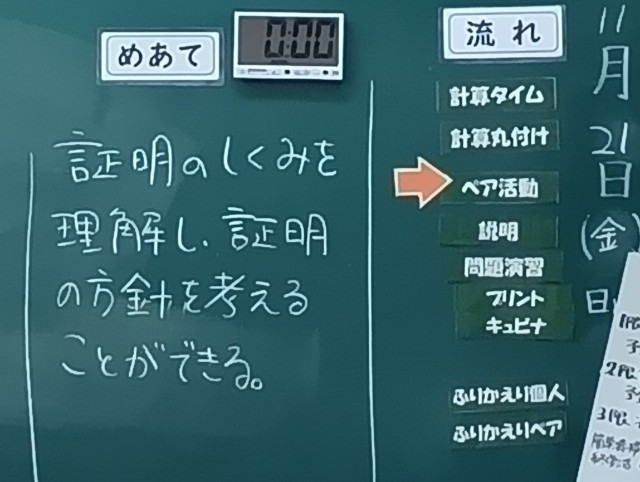 めあて
0:00
証明のしくみを
理解し、証明
の方針を考える
ことができる。
流れ
計算タイム
計算丸付け
ペア活動
説明
問題演習
プリント
キュビナ
ふりかえり個人
ふりかえりペア
11月21日(金)
日